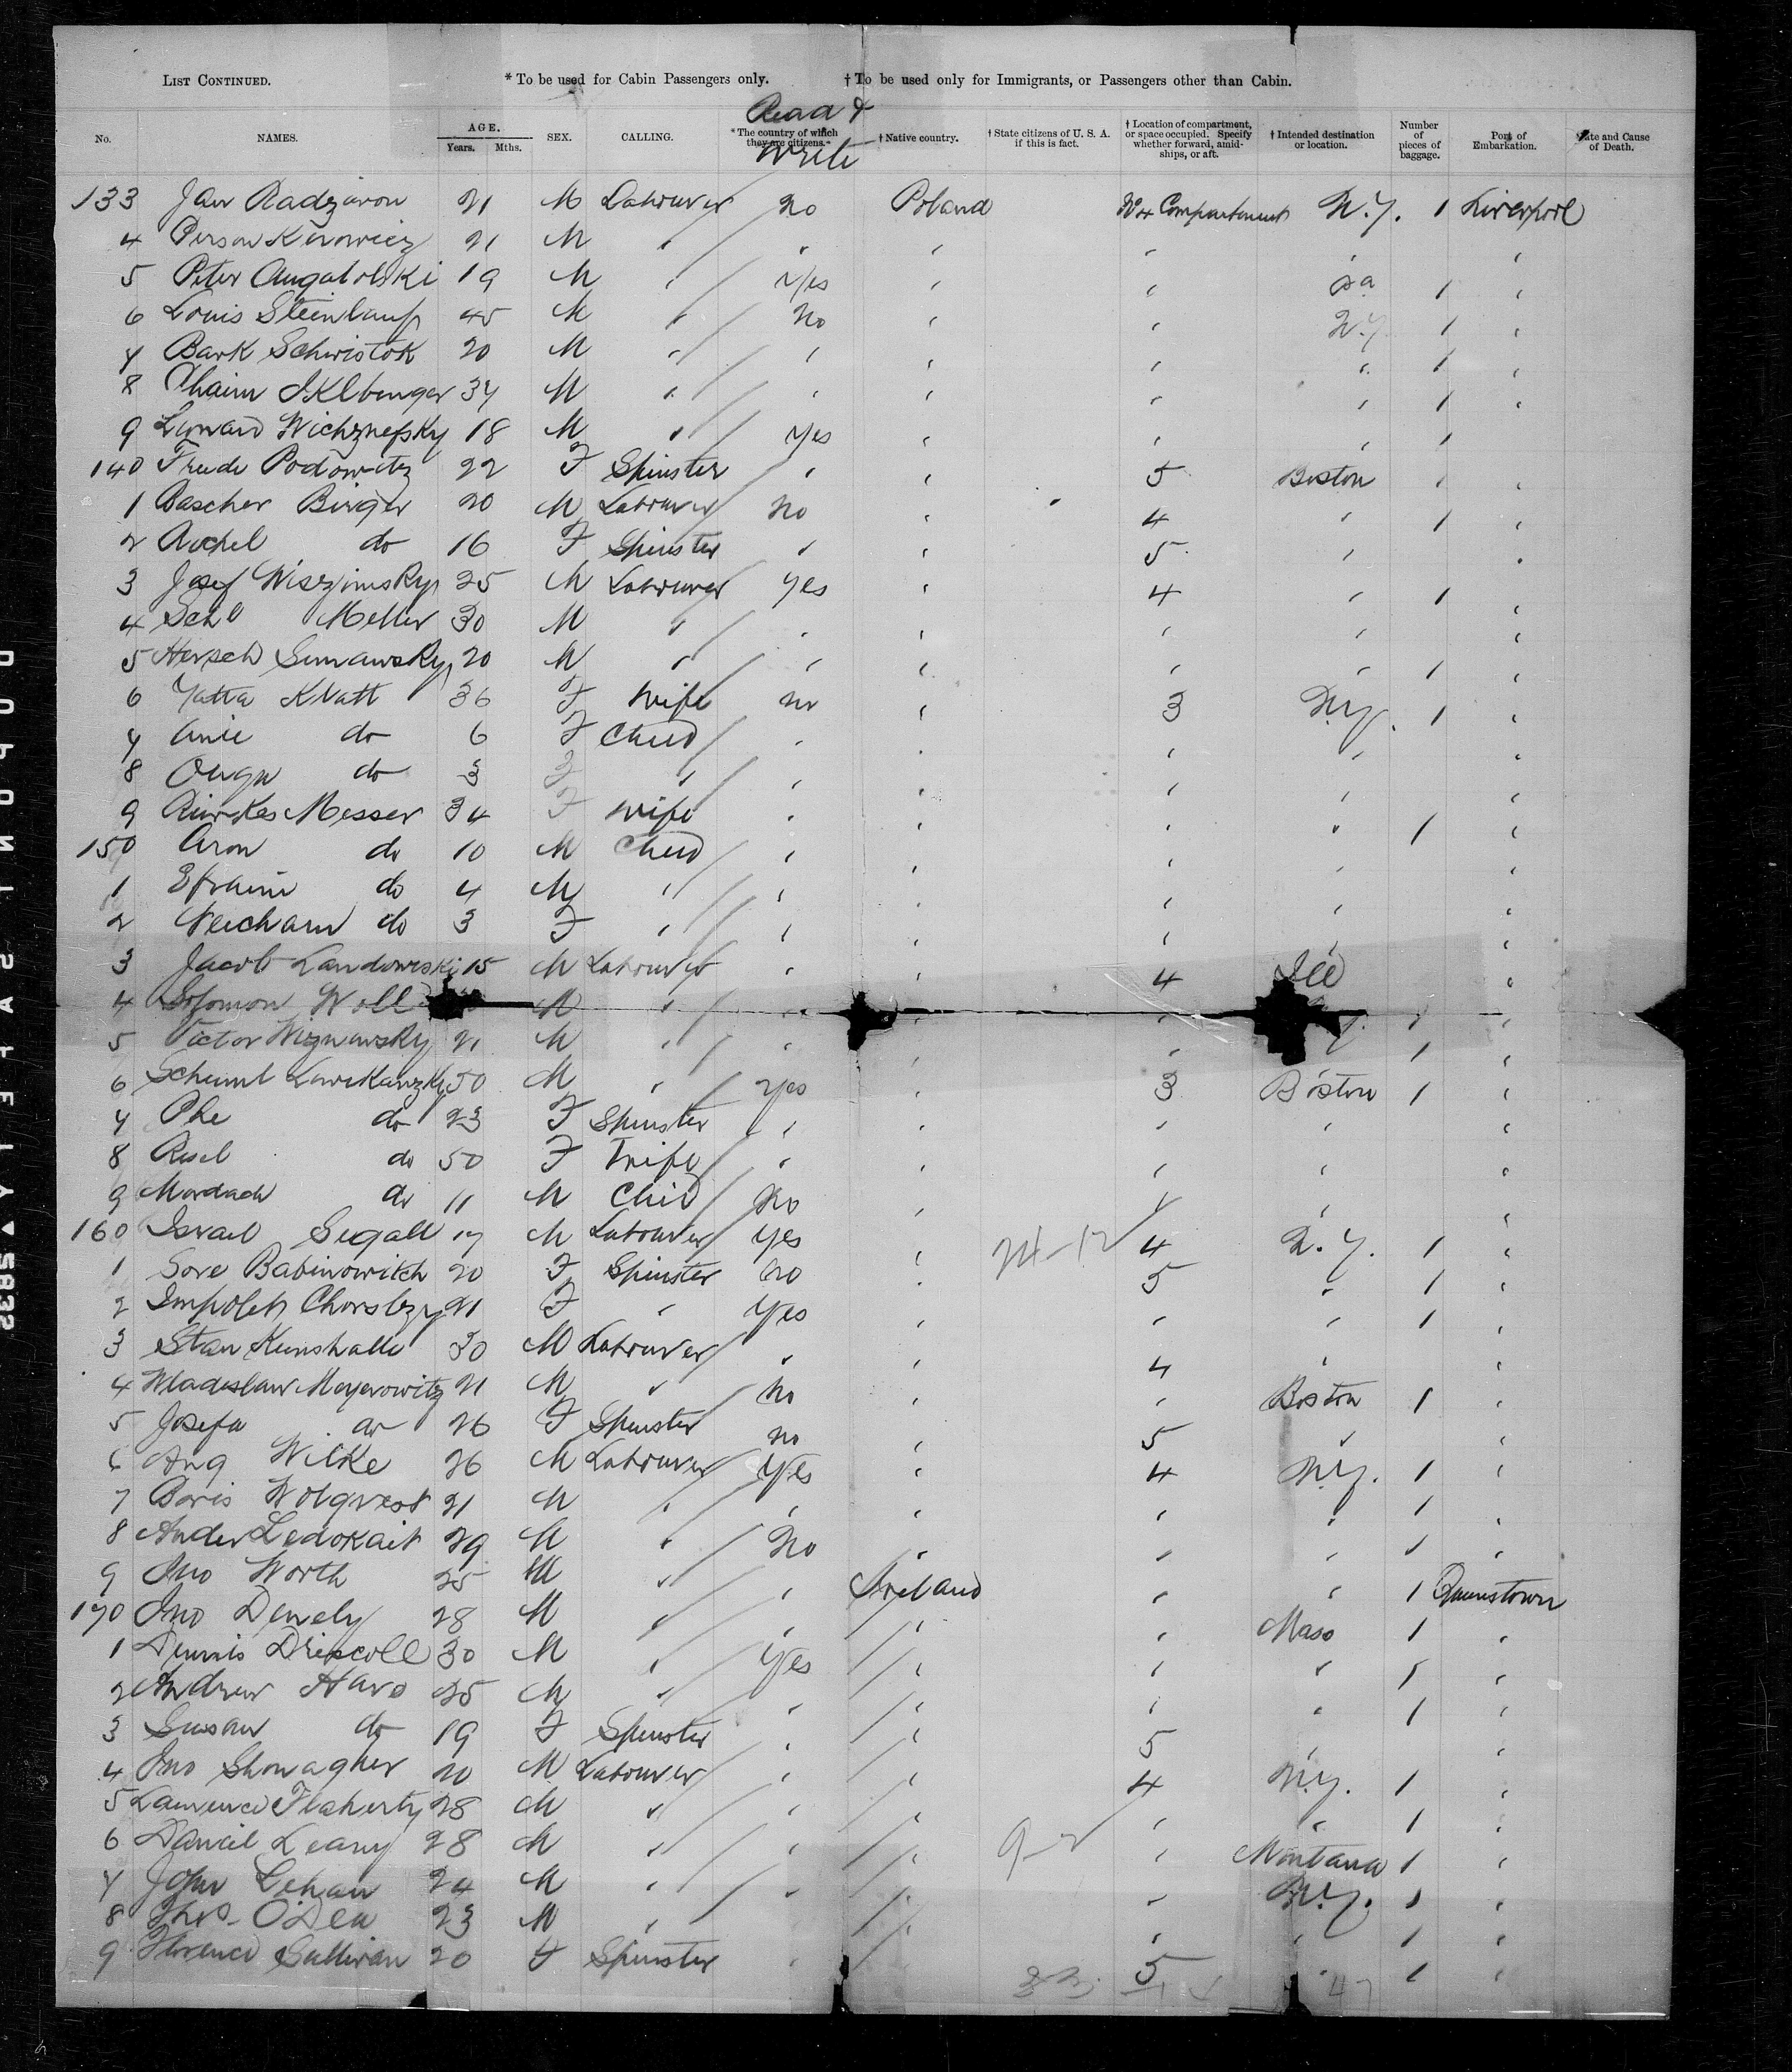 LIST CONTINUED. * To be used for Cabin Passengers only. † To be used only for Immigrants, or Passengers other than Cabin.
Read &
No. NAMES. AGE. Years. Mths. SEX. CALLING. *The country of which they are citizens. † Native country. † State citizens of U. S. A. if this is fact. † Location of compartment, or space occupied. Specify whether forward, amidships, or aft. † Intended destination or location. Number of pieces of baggage. Port of Embarkation. Date and Cause of Death.
Write
133 Jan Radzavon 21 M Labourer no Poland No 4 Compartment N.Y. 1 Liverpool
4 Person Kirowicz 21 M " " " " " "
5 Peter Augatolski 19 M " Yes " " Pa 1 "
6 Louis Steinlauf 45 M " No " " N.Y. 1 "
7 Bark Schwistok 20 M " " " " " 1 "
8 Chaim 37 M " " " " " 1 "
9 18 M " Yes " " " 1
140 Frude Podowitz 22 F Spinster " " 5 Boston 1 "
1 Bascher Birger 20 M Labourer no " 4 " 1 "
2 Rochel do 16 F Spinster " " 5 " "
3 Josef Wiszjimsky 25 M Labourer yes " 4 " 1 "
4 Schl Meller 30 M " " " " " "
5 Hersch Simawsky 20 M " " " " " 1 "
6 Yatta Klatt 36 F Wife no " 3 N.Y. 1 "
7 Anie do 6 F Child " " " " "
8 do 3 F " " " " " "
9 Messer 34 F Wife " " " " 1 "
150 Aron do 10 M Child " " " " "
1 Efraim do 4 M " " " " " "
2 do 3 F " " " " " "
3 Jacob Landowski 15 M Labourer " " 4 Ill "
4 Solomon Woll M " " " " 1 "
5 Victor Wiznawsky 21 M " " " " 1 "
6 50 M " Yes " 3 Boston 1 "
7 do 23 F Spinster " " " " "
8 Resel do 50 F Wife " " " " "
9 Mordach do 11 M Child No " " " "
160 Israel Segall 17 M Labourer Yes " 24-12 4 N.Y. 1 "
1 Sore Babinowitch 20 F Spinster no " 5 " 1 "
2 21 F " Yes " " " 1 "
3 Stan Kunshalle 30 M Labourer " " 4 " "
4 Wladeslaw Meyerowitz 21 M " no " " Boston 1 "
5 Josefa do 26 F Spinster no " 5 " "
6 Aug Wilke 26 M Labourer Yes " 4 N.Y. 1 "
7 Boris Wolqvest 21 M " " " " " 1
8 Ander Ledokait 29 M " No " " " 1 "
9 Jno Worth 25 M " " Ireland " " 1 Queenstown
170 Jno Denely 28 M " " " " Mass 1 "
1 Dennis Driscoll 30 M " Yes " " " 1 "
2 Andrew Hays 25 M " " " " " 1 "
3 Susan do 19 F Spinster " " 5 " "
4 Jno Shonagher 20 M Labourer " " 4 N.Y. 1 "
5 Laurence Flaherty 28 M " " " " " 1 "
6 Daniel Leary 28 M " " " 9-2 " Montana 1 "
7 John Lehan 24 M " " " " N.Y. 1 "
8 Thos O'Dea 23 M " " " " 1 "
9 Florence Sullivan 20 F Spinster " " 5 " 1 "
47